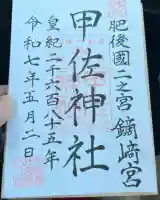 肥後國二之宮 鏑崎宮
甲佐神社
皇紀二千六百八十五年
令和七年五月二日